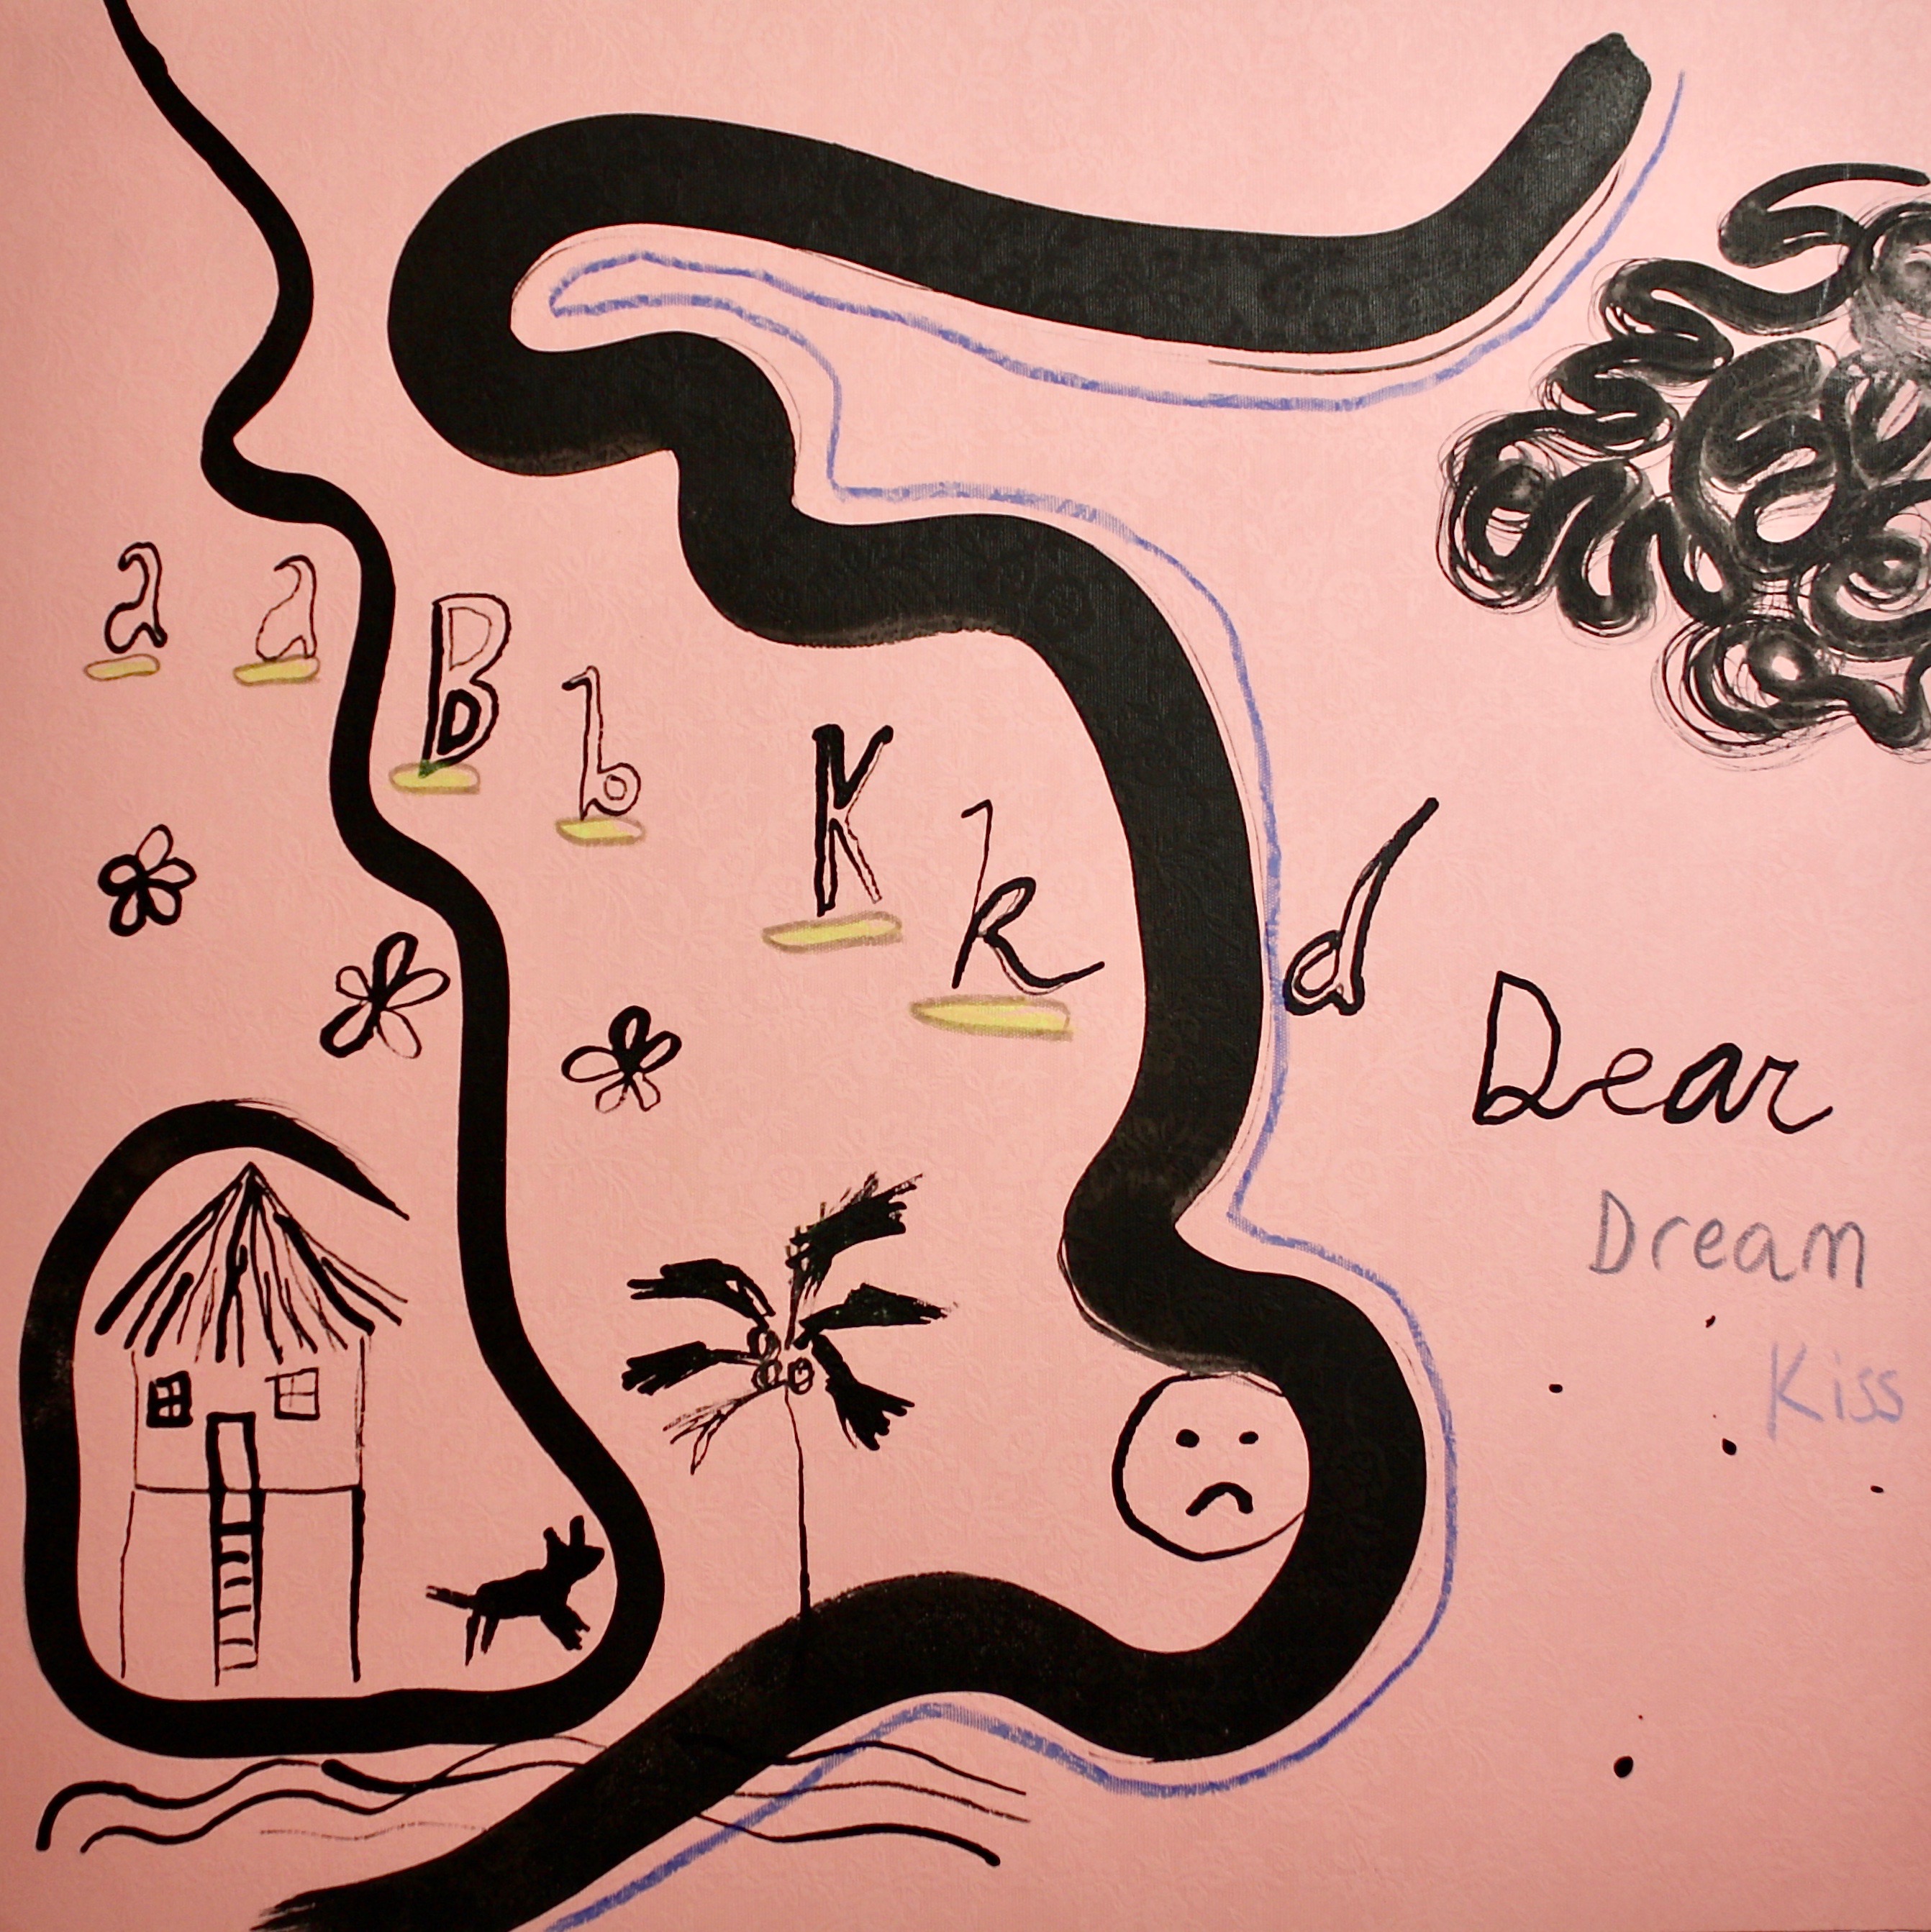 a a B b K k d
Dear
Dream
Kiss